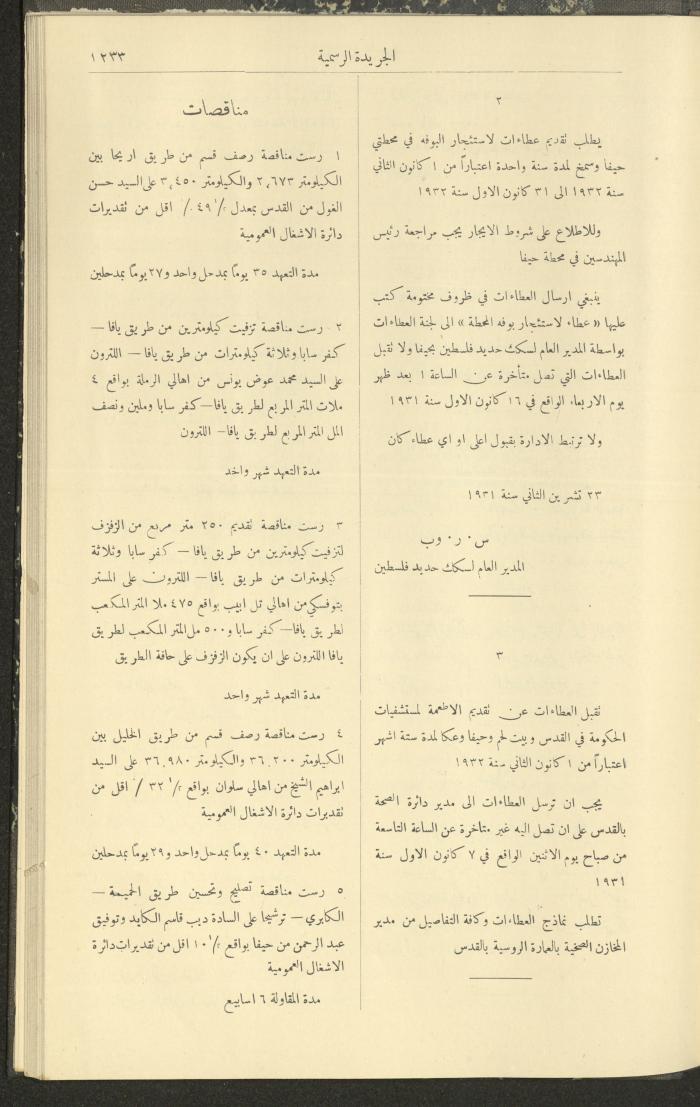 الجريدة الرسمية
١٢٣٣
٢
يطلب تقديم عطاءات لاستئجار البوفه في محطتي
حيفا وسمخ لمدة سنة واحدة اعتباراً من ١ كانون الثاني
سنة ١٩٣٢ الى ٣١ كانون الاول سنة ١٩٣٢
وللاطلاع على شروط الايجار يجب مراجعة رئيس
المهندسين في محطة حيفا
ينبغي ارسال العطاءات في ظروف مختومة كتب
عليها « عطاء لاستئجار بوفه المحطة » الى لجنة العطاءات
بواسطة المدير العام لسكك حديد فلسطين بحيفا ولا تقبل
العطاءات التي تصل متأخرة عن الساعة ١ بعد ظهر
يوم الاربعاء الواقع في ١٦ كانون الاول سنة ١٩٣١
ولا ترتبط الادارة بقبول اعلى او اي عطاء كان
٢٣ تشرين الثاني سنة ١٩٣١
س٠ ر٠ وب
المدير العام لسكك حديد فلسطين
٣
تقبل العطاءات عن تقديم الاطعمة لمستشفيات
الحكومة في القدس وبيت لحم وحيفا وعكا لمدة ستة اشهر
اعتباراً من ١ كانون الثاني سنة ١٩٣٢
يجب ان ترسل العطاءات الى مدير دائرة الصحة
بالقدس على ان تصل اليه غير متاخرة عن الساعة التاسعة
من صباح يوم الاثنين الواقع في ٧ كانون الاول سنة
١٩٣١
تطلب نماذج العطاءات وكافة التفاصيل من مدير
المخازن الصحية بالعمارة الروسية بالقدس
مناقصات
١ رست مناقصة رصف قسم من طريق اريحا بين
الكيلومتر ٢,٦٧٣ والكيلومتر ٣,٤٥٠ على السيد حسن
الغول من القدس بمعدل ٤٩ ٪ اقل من تقديرات
دائرة الاشغال العمومية
مدة التعهد ٣٥ يوماً بمدحل واحد و٢٧ يوماً بمدحلين
٢ رست مناقصة تزفيت كيلومترين من طريق يافا —
كفر سابا وثلاثة كيلومترات من طريق يافا — اللترون
على السيد محمد عوض يونس من اهالي الرملة بواقع ٤
ملات المتر المربع لطريق يافا — كفر سابا وملين ونصف
المل المتر المربع لطريق يافا — اللترون
مدة التعهد شهر واحد
٣ رست مناقصة تقديم ٢٥٠ متر مربع من الزفزف
لتزفيت كيلومترين من طريق يافا — كفر سابا وثلاثة
كيلومترات من طريق يافا — اللترون على المستر
بتوفسكي من اهالي تل ابيب بواقع ٤٧٥ ملا المتر المكعب
لطريق يافا — كفر سابا و٥٠٠ مل المتر المكعب لطريق
يافا اللترون على ان يكون الزفزف على حافة الطريق
مدة التعهد شهر واحد
٤ رست مناقصة رصف قسم من طريق الخليل بين
الكيلومتر ٣٦,٢٠٠ والكيلومتر ٣٦,٩٨٠ على السيد
ابراهيم الشيخ من اهالي سلوان بواقع ٣٢ ٪ اقل من
تقديرات دائرة الاشغال العمومية
مدة التعهد ٤٠ يوماً بمدحل واحد و٢٩ يوماً بمدحلين
٥ رست مناقصة تصليح وتحسين طريق الحميمة —
الكابري — ترشيحا على السادة ديب قاسم الكايد وتوفيق
عبد الرحمن من حيفا بواقع ١٠٪ اقل من تقديرات دائرة
الاشغال العمومية
مدة المقاولة ٦ اسابيع